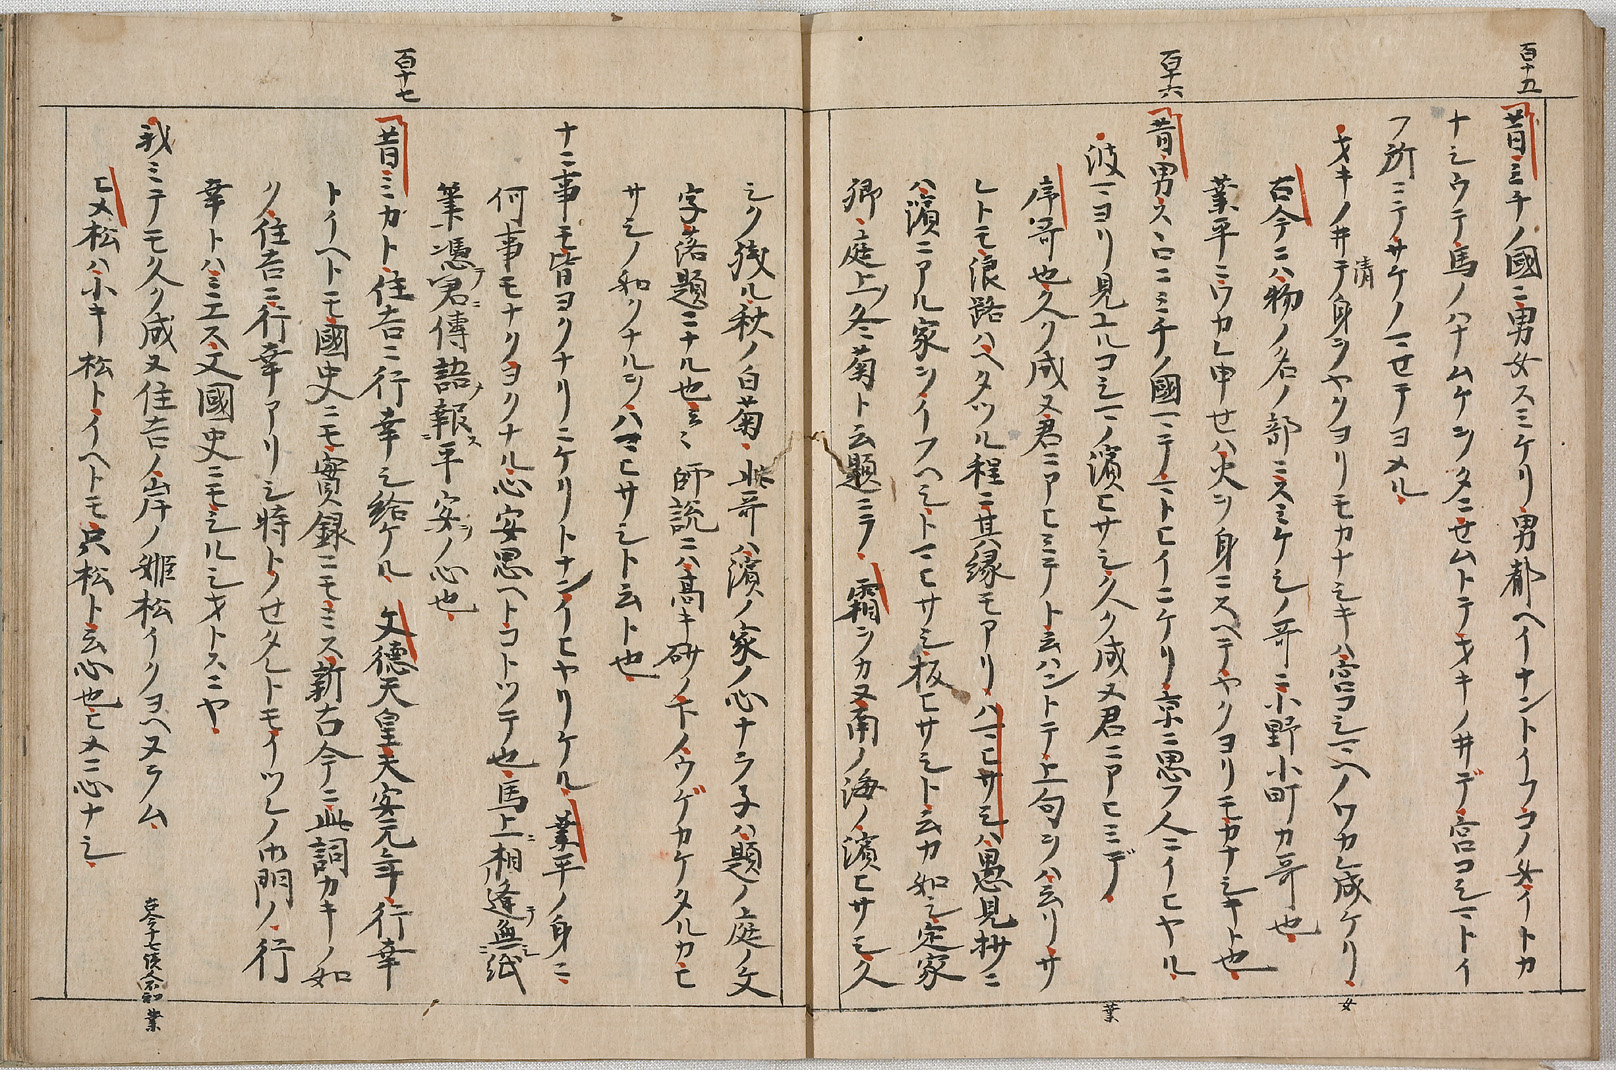 百十五
昔ミチノ國ニ男女スミケリ男都ヘイナントイフコノ女イトカ
ナシウテ馬ノハナムケヲタニせムトテヲキノ井デ宮コシマトイ
フ所ニテサケノマせテヨメル
ヲキノ井テ身ヲヤクヨリモカナシキハ宮コシマヘノワカレ成ケリ
清
女
古今ニハ物ノ名ノ部ニスミケシノ哥ニ小野小町カ哥也
業平ニワカレ申せハ火ヲ身ニスヘテヤクヨリモカナシキト也
百十六
昔男スヽロニミチノ國マテマトヒイニケリ京ニ思フ人ニイヒヤル
波マヨリ見ユルコシマノ濱ヒサシ久ク成ヌ君ニアヒミデ
業
序哥也久ク成ヌ君ニアヒミテト云ハントテ上句ヲハ云リサ
レトモ浪路ハヘタツル程ニ其縁モアリハマヒサシハ愚見抄ニ
ハ濱ニアル家ヲイフヘシトマヒサシ板ヒサシト云カ如シ定家
卿庭上ノ冬菊ト云題ニテ霜ヲカヌ南ノ海ノ濱ヒサシ久
シク残ル秋ノ白菊此哥ハ濱ノ家ノ心ナラ子ハ題ノ庭ノ文
字落題ニナル也云々師説ニハ高キ砌ノ下ノウゲカケタルカヒ
サシノ如クナルヲハマヒサシト云ト也
ナニ事モ皆ヨクナリニケリトナンイヒヤリケル業平ノ身ニ
何事モナクヨクナル心安思ヘトコトツテ也馬上ニ相逢テ無紙
筆憑テ君ニ傳語ノ報ニス平安ヲノ心也
百十七
昔ミカト住吉ニ行幸シ給ケル文德天皇天安元年行幸
トイヘトモ國史ニモ實録ニモミス新古今ニ此詞カキノ如
ク住吉ニ行幸アリシ時トノせタレトモイツレノ御門ノ行
幸トハミエス文國史ニモシルシヲトスニヤ
我ミテモ久ク成ヌ住吉ノ岸ノ姫松イクヨヘヌラム
業
ヒメ松ハ小キ松トイヘトモ只松ト云心也ヒメニ心ナシ